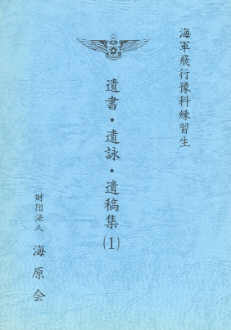 海軍飛行豫科練習生
遺書・遺詠・遺稿集
(1)
財団法人 海原会